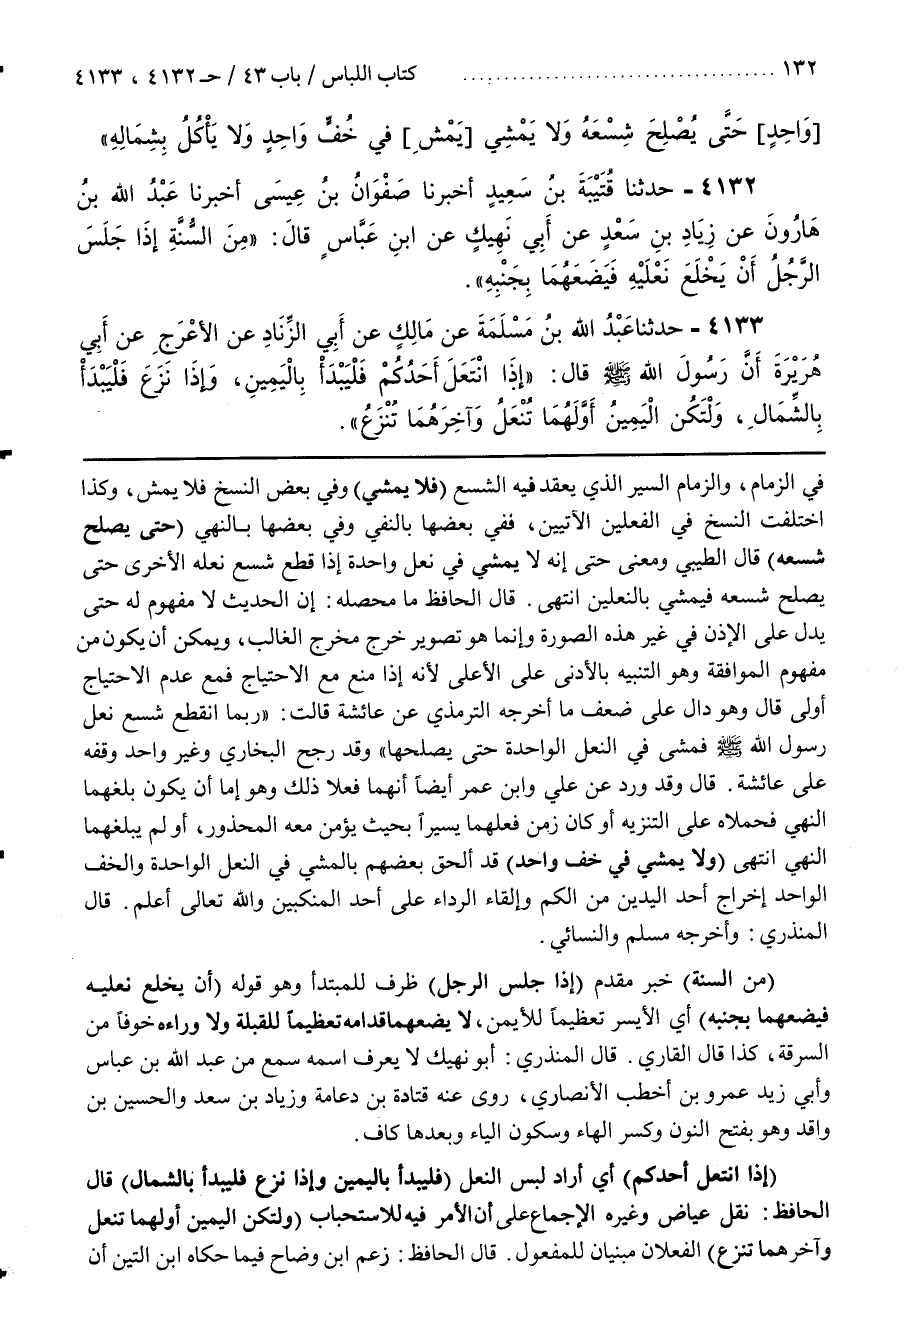 ١٣٢ ..................................... كتاب اللباس / باب ٤٣ / حـ ٤١٣٢ ، ٤١٣٣
[وَاحِدٍ] حَتَّى يُصْلِحَ شِسْعَهُ وَلا يَمْشِي [يَمْشِ] في خُفٍّ وَاحِدٍ وَلا يَأْكُلُ بِشِمَالِهِ»
٤١٣٢ - حدثنا قُتَيْبَةَ بنُ سَعِيدٍ أخبرنا صَفْوَانُ بنُ عِيسَى أخبرنا عَبْدُ الله بنُ
هَارُونَ عن زِيَادِ بنِ سَعْدٍ عن أَبِي نَهِيكٍ عن ابنِ عَبَّاسٍ قالَ: «مِنَ السُّنَّةِ إذَا جَلَسَ
الرَّجُلُ أَنْ يَخْلَعَ نَعْلَيْهِ فَيَضَعَهُمَا بِجَنْبِهِ».
٤١٣٣ - حدثناعَبْدُ الله بنُ مَسْلَمَةَ عن مَالِكٍ عن أَبي الزِّنَادِ عن الأعْرَجِ عن أَبي
هُرَيْرَةَ أَنَّ رَسُولَ الله ﷺ قال: «إذَا انْتَعَلَ أَحَدُكُمْ فَلْيَبْدَأْ بِالْيَمِينِ، وَإذَا نَزَعَ فَلْيَبْدَأْ
بِالشِّمَالِ، وَلْتَكُن الْيَمِينُ أَوَّلَهُمَا تُنْعَلُ وَآخِرَهُمَا تُنْزَعُ».
في الزمام، والزمام السير الذي يعقد فيه الشسع (فلا يمشي) وفي بعض النسخ فلا يمش، وكذا
اختلفت النسخ في الفعلين الآتيين، ففي بعضها بالنفي وفي بعضها بـالنهي (حتى يصلح
شسعه) قال الطيبي ومعنى حتى إنه لا يمشي في نعل واحدة إذا قطع شسع نعله الأخرى حتى
يصلح شسعه فيمشي بالنعلين انتهى. قال الحافظ ما محصله: إن الحديث لا مفهوم له حتى
يدل على الإذن في غير هذه الصورة وإنما هو تصوير خرج مخرج الغالب، ويمكن أن يكون من
مفهوم الموافقة وهو التنبيه بالأدنى على الأعلى لأنه إذا منع مع الاحتياج فمع عدم الاحتياج
أولى قال وهو دال على ضعف ما أخرجه الترمذي عن عائشة قالت: «ربما انقطع شسع نعل
رسول الله ﷺ فمشى في النعل الواحدة حتى يصلحها» وقد رجح البخاري وغير واحد وقفه
على عائشة. قال وقد ورد عن علي وابن عمر أيضاً أنهما فعلا ذلك وهو إما أن يكون بلغهما
النهي فحملاه على التنزيه أو كان زمن فعلهما يسيراً بحيث يؤمن معه المحذور، أو لم يبلغهما
النهي انتهى (ولا يمشي في خف واحد) قد ألحق بعضهم بالمشي في النعل الواحدة والخف
الواحد إخراج أحد اليدين من الكم وإلقاء الرداء على أحد المنكبين والله تعالى أعلم. قال
المنذري: وأخرجه مسلم والنسائي.
(من السنة) خبر مقدم (إذا جلس الرجل) ظرف للمبتدأ وهو قوله (أن يخلع نعليـه
فيضعهما بجنبه) أي الأيسر تعظيماً للأيمن، لا يضعهما قدامه تعظيماً للقبلة ولا وراءه خوفاً من
السرقة، كذا قال القاري. قال المنذري: أبو نهيك لا يعرف اسمه سمع من عبد الله بن عباس
وأبي زيد عمرو بن أخطب الأنصاري، روى عنه قتادة بن دعامة وزياد بن سعد والحسين بن
واقد وهو بفتح النون وكسر الهاء وسكون الياء وبعدها كاف.
(إذا انتعل أحدكم) أي أراد لبس النعل (فليبدأ باليمين وإذا نزع فليبدأ بالشمال) قال
الحافظ: نقل عياض وغيره الإجماع على أن الأمر فيه للاستحباب (ولتكن اليمين أولهما تنعل
وآخرهما تنزع) الفعلان مبنيان للمفعول. قال الحافظ: زعم ابن وضاح فيما حكاه ابن التين أن